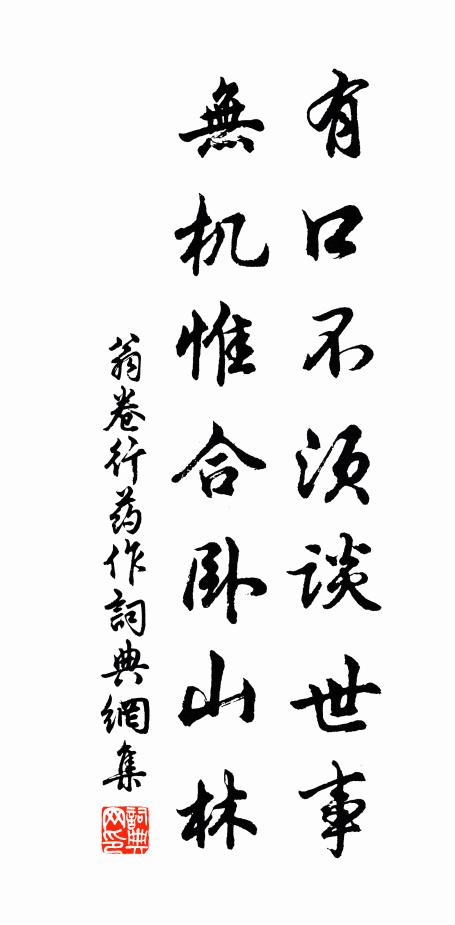 有口不須談世事
無机惟合卧山林
翁卷行药作詞典網集
詞典網印